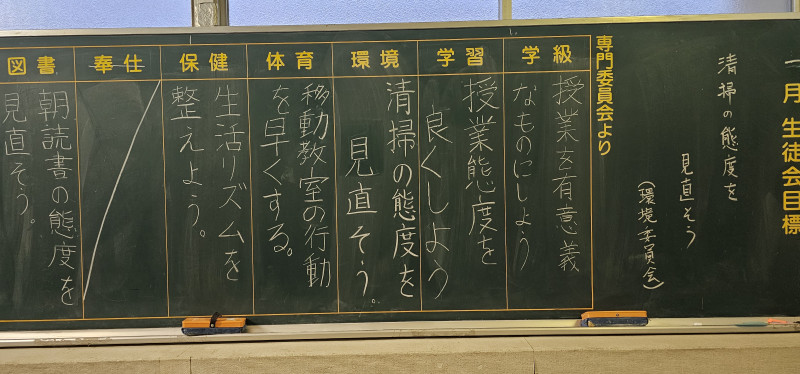 一月生徒会目標
清掃の態度を
見直そう
(環境委員会)
専門委員会より
学級
授業を有意義
なものにしよう
学習
授業態度を
良くしよう
環境
清掃の態度を
見直そう。
体育
移動教室の行動
を早くする。
保健
生活リズムを
整えよう。
奉仕
図書
朝読書の態度を
見直そう。